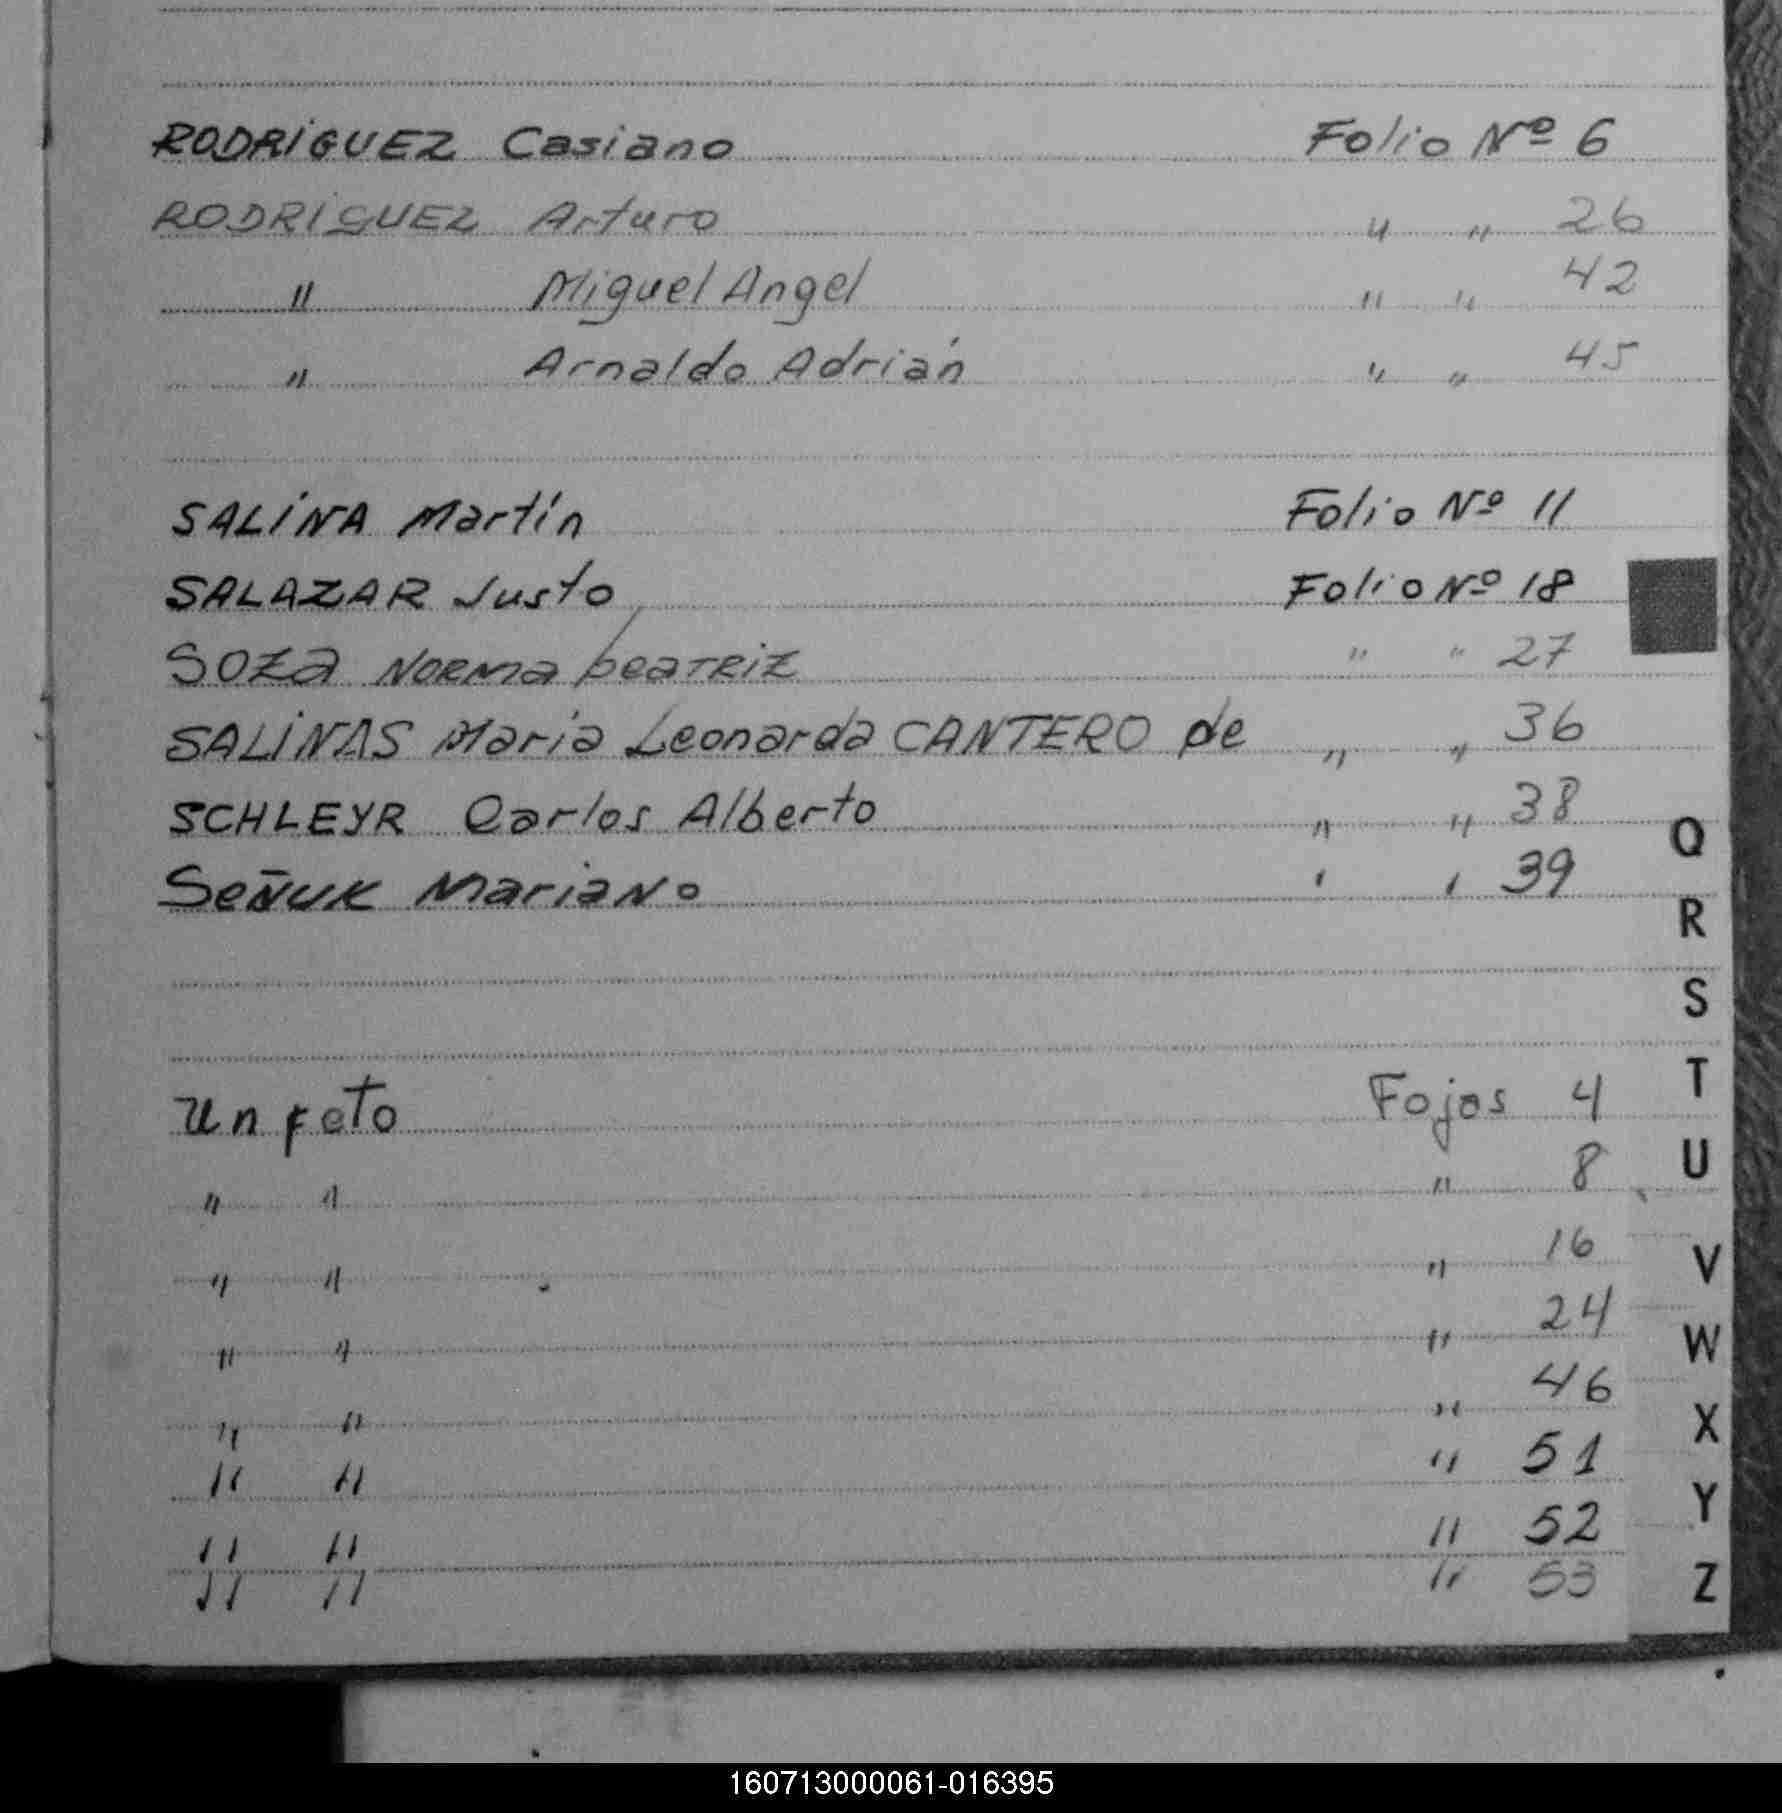 RODRIGUEZ Casiano Folio Nº 6
RODRIGUEZ Arturo " " 26
" Miguel Angel " " 42
" Arnaldo Adrián " " 45
SALINA Martín Folio Nº 11
SALAZAR Justo Folio Nº 18
SOZA NORMA beaTRIZ " " 27
SALINAS Maria Leonarda CANTERO de " " 36
SCHLEYR Carlos Alberto " " 38
SEÑUK MARIANO ' ' 39
Un feto Fojas 4
" " " 8
" " " 16
" " " 24
" " " 46
" " " 51
" " " 52
" " " 53
Q
R
S
T
U
V
W
X
Y
Z
160713000061-016395